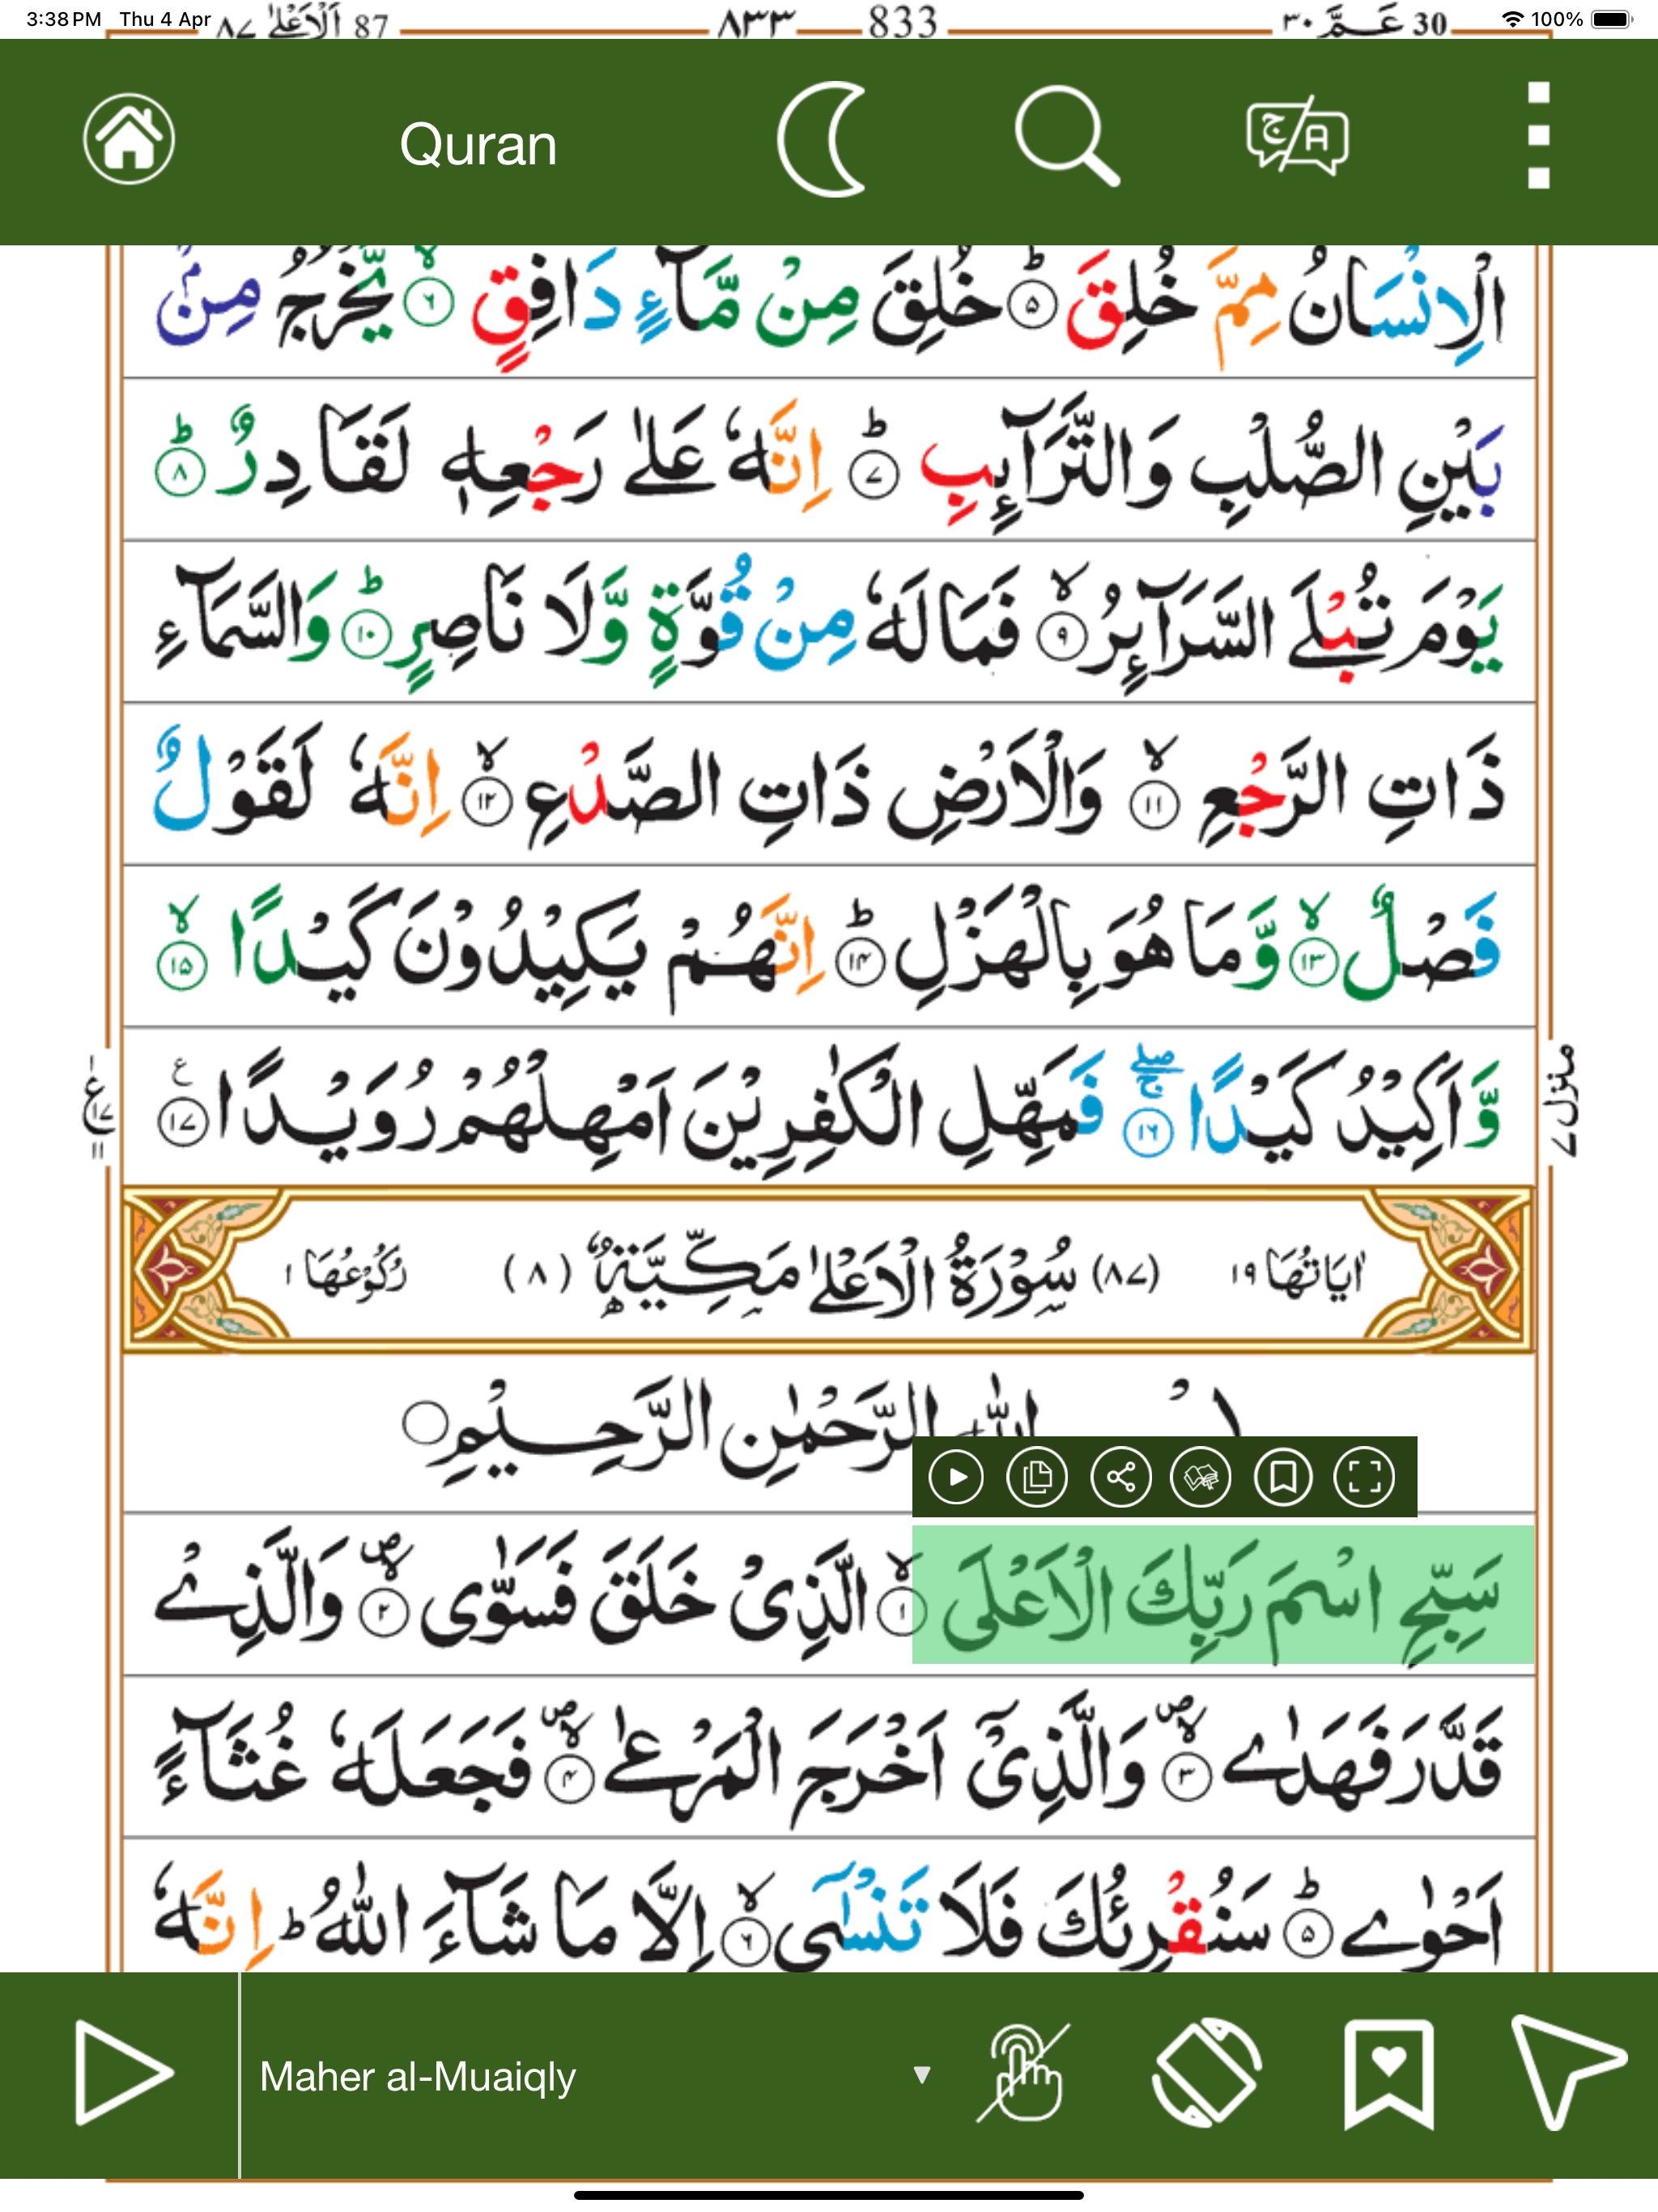 3:38 PM Thu 4 Apr
30 عَـمَّ ٣٠ 833 ٨٣٣ 87 اَلْاَعْلٰى ٨٧
100%
Quran
الْاِنْسَانُ مِمَّ خُلِقَ ؕ ۵ خُلِقَ مِنْ مَّآءٍ دَافِقٍ ۙ ۶ يَّخْرُجُ مِنْۢ
بَيْنِ الصُّلْبِ وَالتَّرَآئِبِ ؕ ۷ اِنَّهٗ عَلٰى رَجْعِهٖ لَقَادِرٌ ؕ ۸
يَوْمَ تُبْلَى السَّرَآئِرُ ۙ ۹ فَمَا لَهٗ مِنْ قُوَّةٍ وَّلَا نَاصِرٍ ؕ ۱۰ وَالسَّمَآءِ
ذَاتِ الرَّجْعِ ۙ ۱۱ وَالْاَرْضِ ذَاتِ الصَّدْعِ ۙ ۱۲ اِنَّهٗ لَقَوْلٌ
فَصْلٌ ۙ ۱۳ وَّمَا هُوَ بِالْهَزْلِ ؕ ۱۴ اِنَّهُمْ يَكِيْدُوْنَ كَيْدًا ۙ ۱۵
وَّاَكِيْدُ كَيْدًا ۚۖ ۱۶ فَمَهِّلِ الْكٰفِرِيْنَ اَمْهِلْهُمْ رُوَيْدًا ۱۷ ع
منزل ۷
ع ۱ ۱۷ ۱۱
اٰيَاتُهَا ۱۹ (۸۷) سُوْرَةُ الْاَعْلٰى مَكِّيَّةٌ (۸) رُكُوْعُهَا ۱
اللّٰهِ الرَّحْمٰنِ الرَّحِيْمِ
سَبِّحِ اسْمَ رَبِّكَ الْاَعْلَى ۙ ۱ الَّذِىْ خَلَقَ فَسَوّٰى ۙ ۪ ۲ وَالَّذِىْ
قَدَّرَ فَهَدٰى ۙ ۪ ۳ وَالَّذِىْٓ اَخْرَجَ الْمَرْعٰى ۙ ۪ ۴ فَجَعَلَهٗ غُثَآءً
اَحْوٰى ؕ ۵ سَنُقْرِئُكَ فَلَا تَنْسٰٓى ۙ ۶ اِلَّا مَا شَآءَ اللّٰهُ ؕ اِنَّهٗ
Maher al-Muaiqly